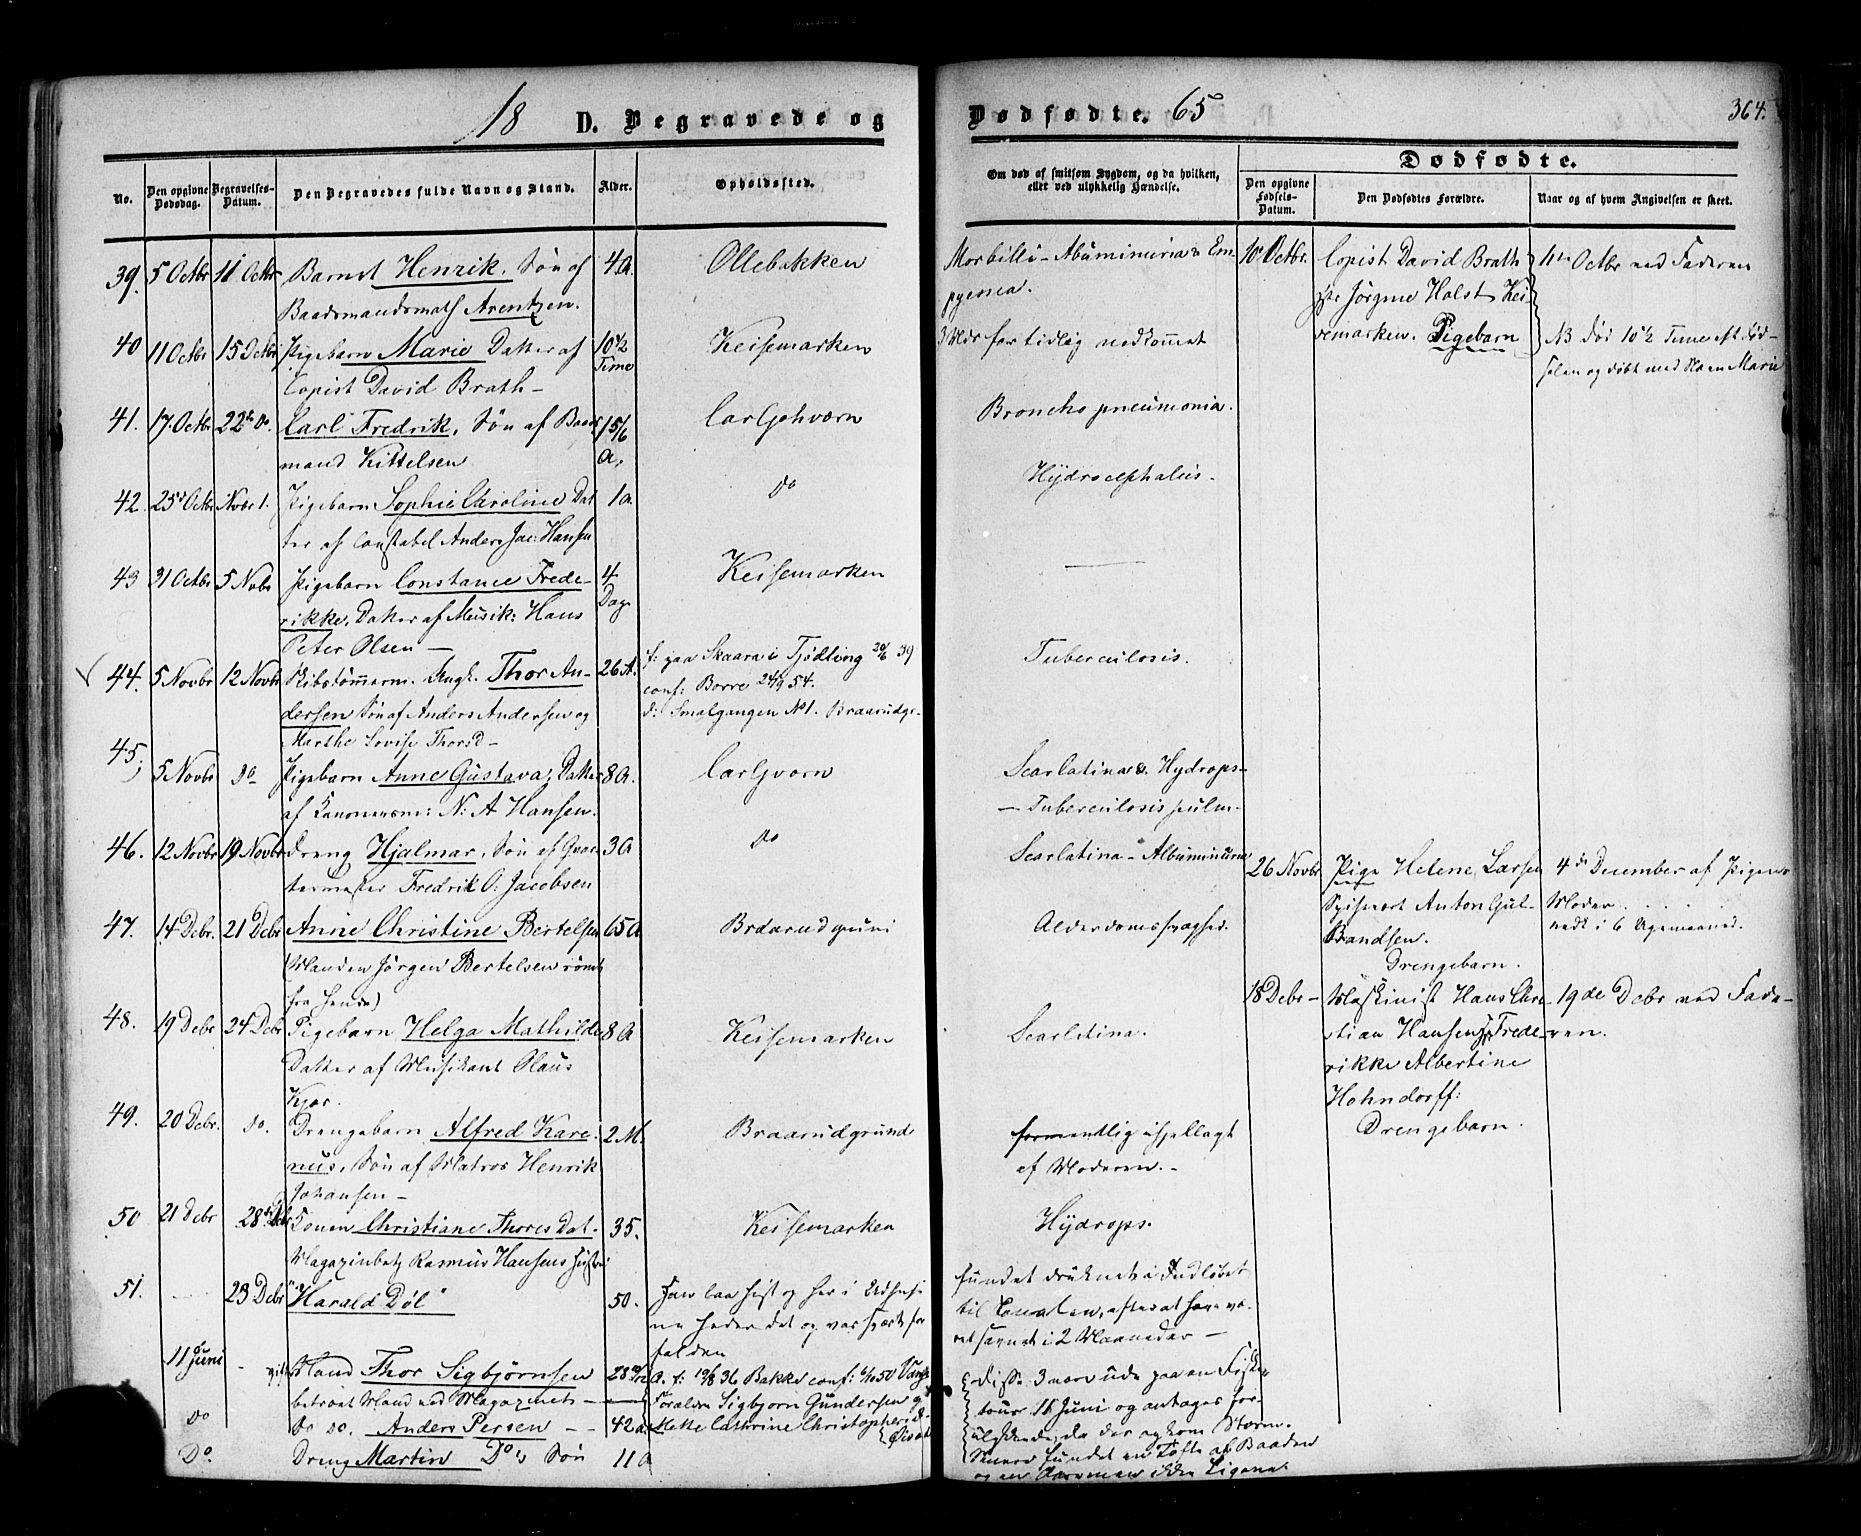 18 D. Begravede og
No.
Den opgivne Dødsdag.
Begravelses-Datum.
Den Begravedes fulde Navn og Stand.
Alder.
Opholdssted.
39. 5 Octbr 11 Octbr Barnet Henrik, Søn af 4 A. Ollebakken
Baadsmandsmath Arentzen.
40 11 Octbr 15 Octbr Pigebarn Marie Datter af 10½ Time Keisemarken
Copist David Brath –
41. 17. Octbr 22de do. Carl Fredrik, Søn af Baads 1 5/6 A. Carljohværn
mand Kittelsen
42. 25de Octbr Novbr 1. Pigebarn Sophie Caroline Dat 1 a. do
ter af Constabel Anders Jac: Hansen
43 31 Octbr 5 Novbr Pigebarn Constance Frede- 4 Dage Keisemarken
rikke, Datter af Musik: Hans
Peter Olsen –
44. 5 Novbr 12 Novbr Skibstømmerm. Ungk. Thor An- 26 A. f: paa Skaara i Tjødling 20/6 39
dersen Søn af Anders Andersen og conf: Borre 24/9 54.
Marthe Lovise Thorsd – d: Smalgangen No 1. Braarudgr.
45, 5 Novbr do Pigebarn Anne Gustava, Datter 8 A. Carljværn
af Kanoneerm: N: A Hansen.
46. 12 Novbr 19 Novbr Dreng Hjalmar, Søn af Qvar 3 A do
termester Fredrik O: Jacobsen
47. 14 Debr. 21 Debr Anne Christine Bertelsen 65 A Braarudgruni
(Manden Jørgen Bertelsen rømt
fra hende)
48. 19 Debr 24 Debr Pigebarn Helga Mathilde 8 A Keisemarken
Datter af Musikant Olaus
Kjær.
49. 20 Debr. do. Drengebarn Alfred Kare- 2 M. Braarudgrund
nus, Søn af Matros Henrik
Johansen –
50 21 Debr 28de Debr Konen Christiane Thores Dat- 35. Keisemarken
Magazinbetj Rasmus Hansens Hustru
51. 23 Debr "Harald Døl" 50. Han laa hist og her i Udhuse
ne heder det og var svært for
falden
11 Juni Mand Thor Sigbjørnsen 28 A. f: 19/8 36 Bakke conf: 6/10 50
betroet Mand ved Magazinet – Forældre Sigbjørn Gundersen og
do do do. Anders Persen – – 42 a. Mette Cathrine Christophersd.
Do. Dreng Martin Do's Søn 11 a
Dødfødte. 65
364.
Om død af smitsom Sygdom, og da hvilken, eller ved ulykkelig Hændelse.
Dødfødte.
Den opgivne Fødsels-Datum.
Den Dødfødtes Forældre.
Naar og af hvem Angivelsen er skeet.
Morbilli – Abuminuria & Em
pyema.
10 Octbr. Copist David Brath
Jørgine Holst Kei
semarken. Pigebarn
11te Octbr ved Faderen
NB Dør 10½ Time eft Fød-
selen og døbt med Navn Marie
3 Mdr for tidlig nedkommet
Broncho pneumonia.
Hydrocephalus.
Tuberculosis.
Scarlatina & Hydrops –
– Tuberculosis pulm –
Scarlatina – Albuminuria
26 Novbr Pige Helene Larsen
Anton Gul-
Brandsen.
Drengebarn.
4de December af Pigens
Moder.
nedk i 6 Ugemaaned.
Alderdomssvaghed.
18 Debr – Maskinist Hans Chri-
stian Hansen Frede-
rikke Albertine
Hohndorff:
Drengebarn.
19de Debr ved Fade-
ren.
Scarlatina.
formentlig ihjellagt
af Moderen. –
Hydrops.
fundet druknet i Indløbet
til Canalen, efterat have væ-
ret savnet i 2 Maaneder –
Disse 3 vare ude paa en Fisker
touer 11 Juni og antages for-
ulykkede, da der opkom Storm.
Senere fundet en Tofte af Baaden
og en Aare men ikke Ligene.